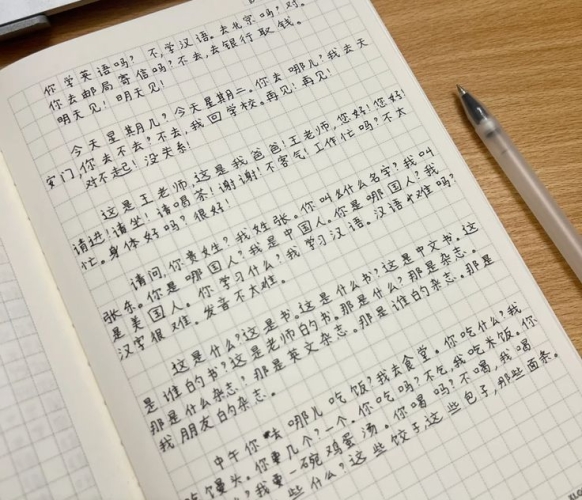 你学英语吗?不,学汉语。去北京吗?对。
你去邮局寄信吗?不去,去银行取钱。
明天见!明天见!
今天星期几?今天星期二。你去哪儿?我去天
安门,你去不去?不去,我回学校。再见!再见!
对不起!没关系!
这是王老师,这是我爸爸!王老师,您好!您好!
请进!请坐!请喝茶!谢谢!不客气!工作忙吗?不太
忙。身体好吗?很好!
请问,你贵姓?我姓张。你叫什么名字?我叫
张东。你是哪国人?我是中国人。你是哪国人?我
是美国人。你学习什么?我学习汉语。汉语难吗?
汉字很难。发音不太难。
这是什么?这是书。这是什么书?这是中文书。这
是谁的书?这是老师的书。那是什么?那是杂志。
那是什么杂志?那是英文杂志。那是谁的杂志。那是
我朋友的杂志。
中午你去哪儿吃饭?我去食堂。你吃什么?我
吃馒头。你要几个?一个。你吃吗?不吃,我吃米饭。你
什么?我要一碗鸡蛋汤。你喝吗?不喝,我喝
些什么?这些饺子,这些包子,那些面条。